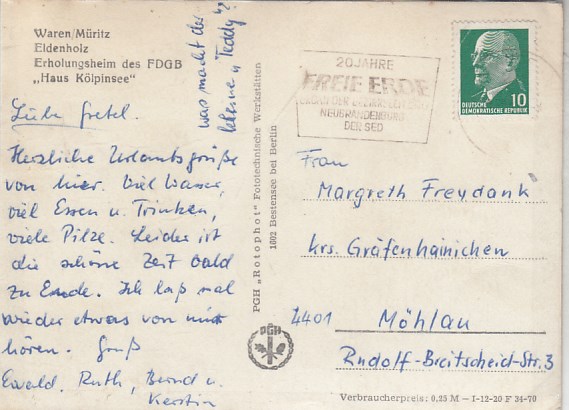 Waren/Müritz
Eldenholz
Erholungsheim des FDGB
„Haus Kölpinsee"
was macht der
kleine u. Teddy?
Liebe Gretel.
Herzliche Urlaubsgrüße
von hier. Viel Wasser,
viel Essen u. Trinken,
viele Pilze. Leider ist
die schöne Zeit bald
zu Ende. Ich laß mal
wieder etwas von mir
hören. Gruß
Ewald, Ruth, Bernd u.
Kerstin
PGH „Rotophot" Fototechnische Werkstätten
1602 Bestensee bei Berlin
PGH
20 JAHRE
FREIE ERDE
ORGAN DER BEZIRKSLEITUNG
NEUBRANDENBURG
DER SED
DEUTSCHE
DEMOKRATISCHE REPUBLIK
10
Frau
Margreth Freydank
Krs. Gräfenhainichen
4401 Möhlau
Rudolf-Breitscheid-Str. 3
Verbraucherpreis: 0,25 M – I-12-20 F 34-70